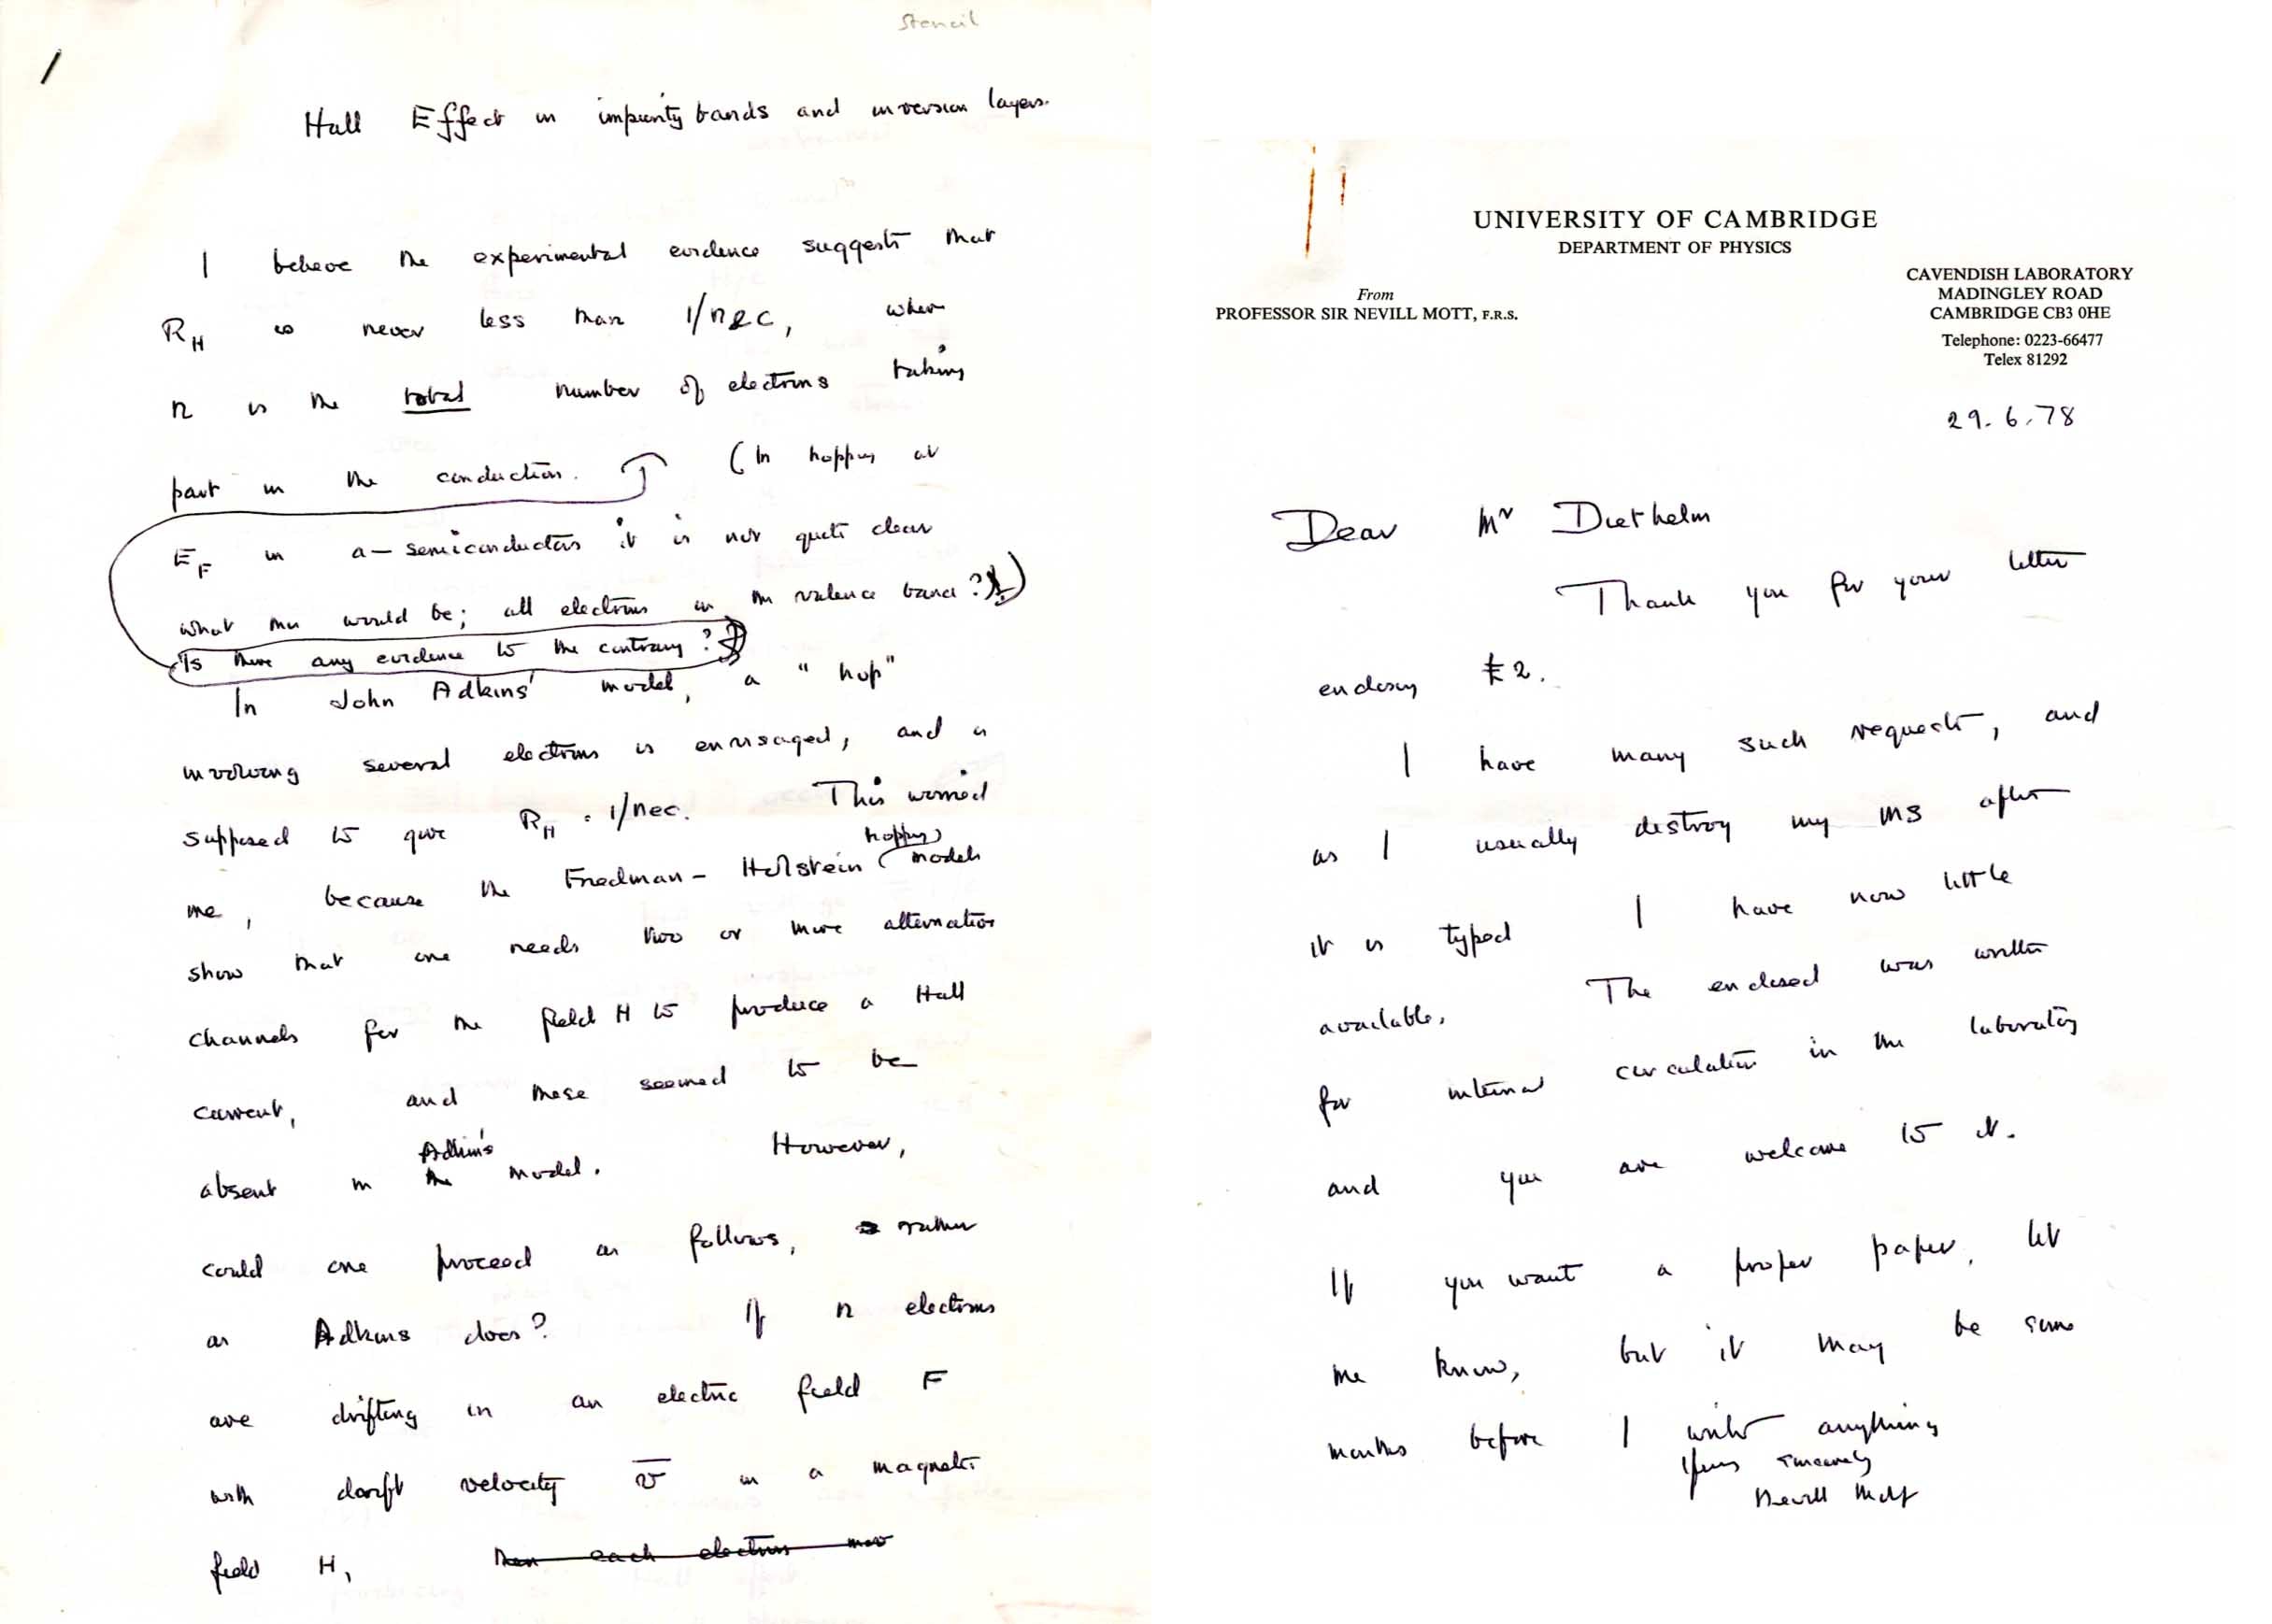 stencil
/
Hall Effect in impurity bands and inversion layers.
I believe the experimental evidence suggests that
R_H is never less than 1/nec, where
n is the total number of electrons taking
part in the conduction. (In hopping at
E_F in a-semiconductors it is not quite clear
what this would be; all electrons in the valence band?)
Is there any evidence to the contrary?
In John Adkins' model, a "hop"
involving several electrons is envisaged, and is
supposed to give R_H = 1/nec. This worried
hopping
me, because the Friedman-Holstein models
show that one needs two or more alternative
channels for the field H to produce a Hall
current, and these seemed to be
Adkin's
absent in the model. However,
could one proceed as follows, rather
as Adkins does? If n electrons
are drifting in an electric field F
with drift velocity v̅ in a magnetic
field H, then each electron
UNIVERSITY OF CAMBRIDGE
DEPARTMENT OF PHYSICS
From
PROFESSOR SIR NEVILL MOTT, F.R.S.
CAVENDISH LABORATORY
MADINGLEY ROAD
CAMBRIDGE CB3 0HE
Telephone: 0223-66477
Telex 81292
29.6.78
Dear Mr Diethelm
Thank you for your letter
enclosing £2.
I have many such requests, and
as I usually destroy my MS after
it is typed I have now little
available. The enclosed was written
for internal circulation in the laboratory
and you are welcome to it.
If you want a proper paper, let
me know, but it may be some
months before I write anything
Yours sincerely
Nevill Mott